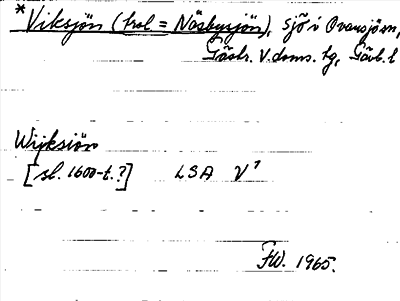 *Viksjön (trol = Näsbysjön), sjö i Ovansjö sn,
Gästr. V. doms. tg, Gävl. l
Wijksiön
[sl. 1600-t.?] LSA V¹
FW. 1965.